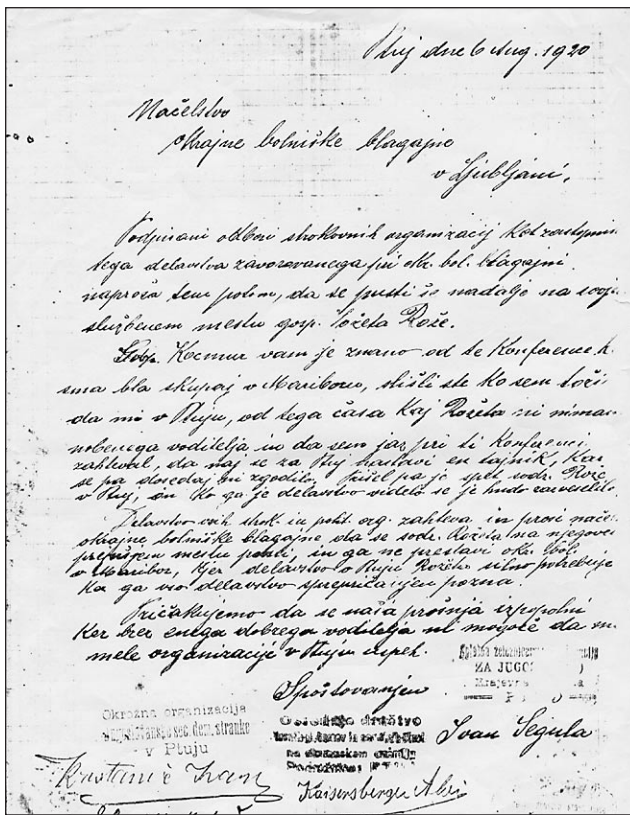 Ptuj dne 6 Aug. 1920
Načelstvo
okrajne bolniške blagajne
v Ljubljani,
Podpisani odbori strokovnih organizacij kot zastopnik
tega delavstva zavarovanega pri okr. bol. blagajni
naproša tem potom, da se pusti še nadalje na svoj
službenem mestu gosp. Jožeta Rože.
Gosp. Kocmur vam je znano od te Konference k
sma bla skupaj v Mariboru, slišli ste ko sem toži
da mi v Ptuju, od tega časa kaj Rožeta ni mimam
nobenega voditelja in da sem jaz pri ti Konferenci
zahteval, da naj se za Ptuj nastavi en tajnik, kar
se pa dosedaj ni zgodilo. Prišel pa je spet sodr. Rože
v Ptuj, on ko ga je delavstvo videlo se je hudo razveselilo.
Delavstvo vseh strok. in polit. org. zahteva in prosi načel
okrajne bolniške blagajne, da se sodr. Rožeta na njegovem
mestu pusti, in ga ne prestavi
v Maribor, kjer delavstvo v Ptuju Rožeta silno potrebuje
ka ga vso delavstvo pozna.
Pričakujemo da se naša prošnja izpopolni
ker brez enega dobrega voditelja ni mogoče da
mele organizacije v Ptuju uspeh.
Spoštovanjem
ZA JUGO
Okrožna organizacija
soc. dem. stranke
v Ptuju
Osrednje društvo
Ivan Segula
Ivan
Kaisersberger Alojz